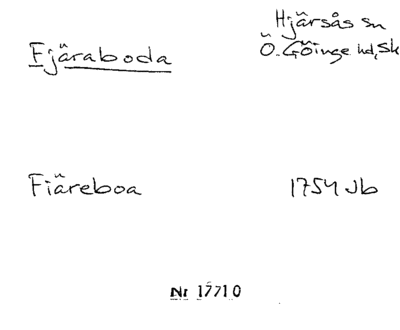 Fjäraboda
Hjärsås sn
Ö. Göinge hd, Sk
Fiäreboa
1754 Jb
Nr 17710